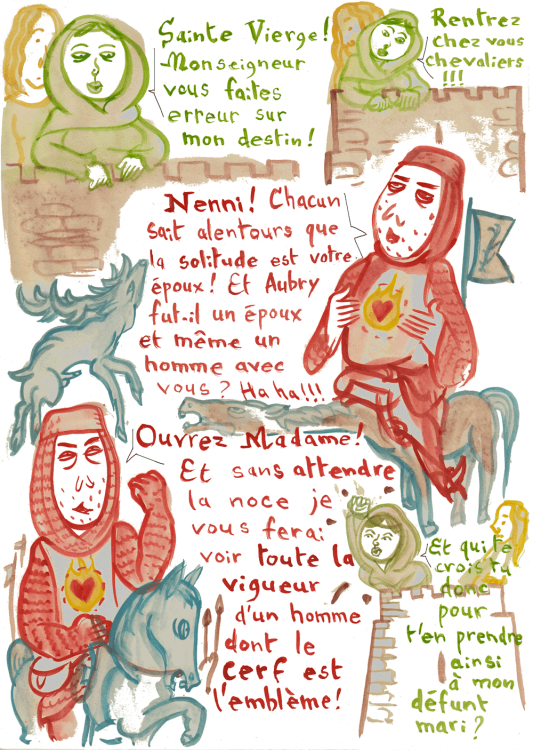 Sainte Vierge!
Monseigneur
vous faites
erreur sur
mon destin!
Rentrez
chez vous
chevaliers
!!!
Nenni! Chacun
sait alentours que
la solitude est votre
époux! Et Aubry
fut-il un époux
et même un
homme avec
vous? Ha ha!!!
Ouvrez Madame!
Et sans attendre
la noce je
vous ferai
voir toute la
vigueur
d'un homme
dont le
cerf est
l'emblème!
Et qui te
crois tu
donc
pour
t'en prendre
ainsi
à mon
défunt
mari?